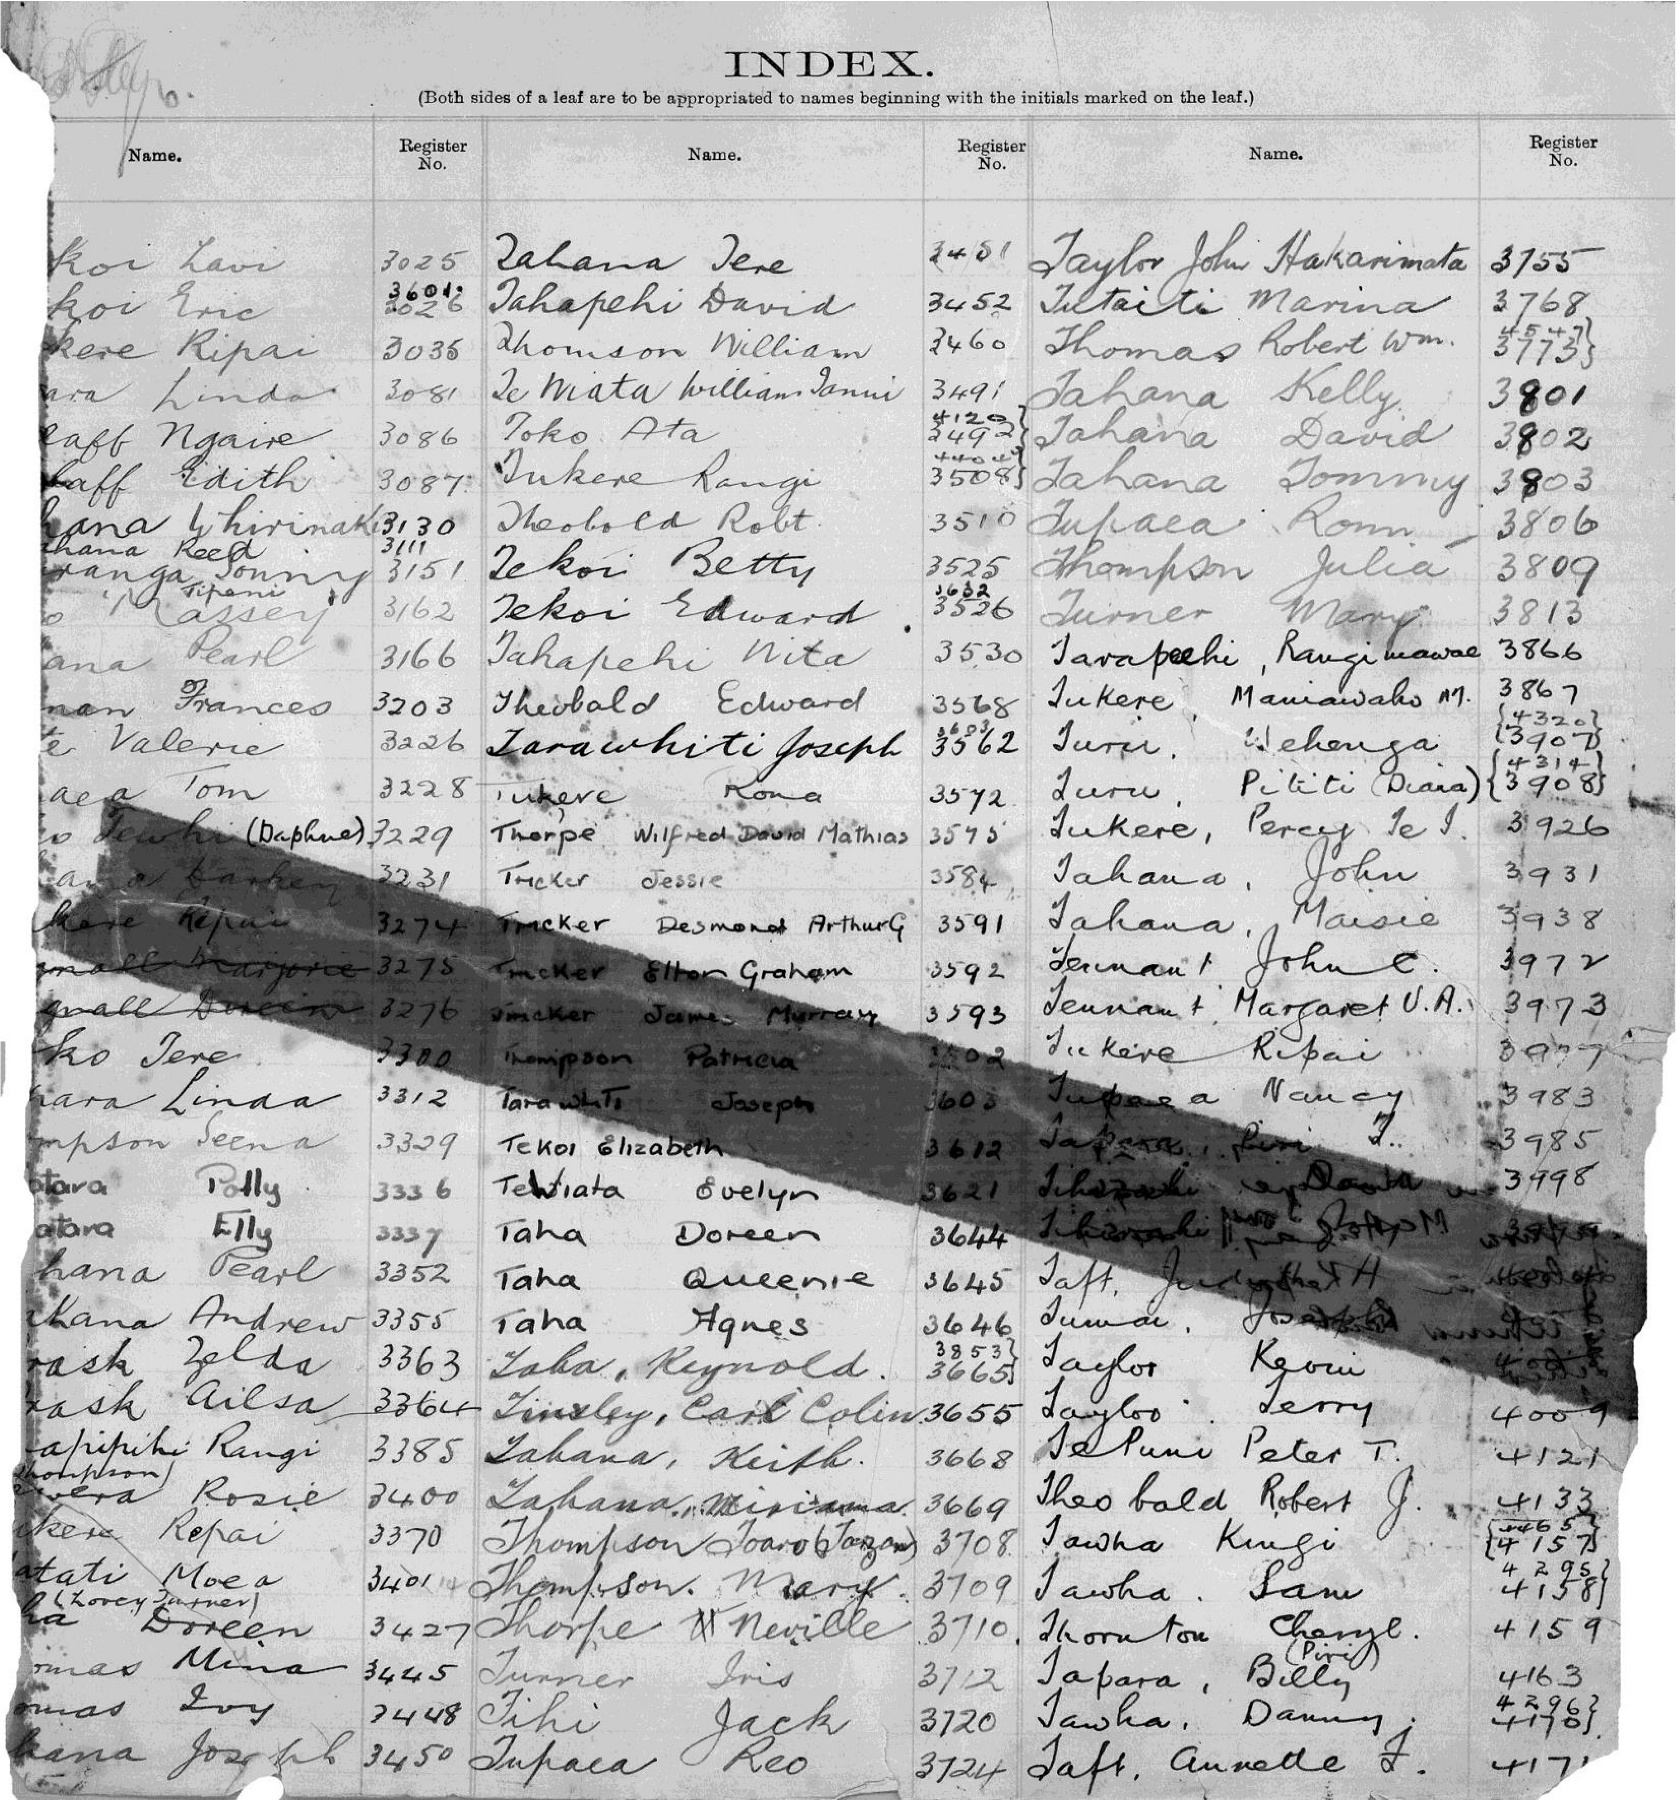 INDEX.
(Both sides of a leaf are to be appropriated to names beginning with the initials marked on the leaf.)
Name. Register No. Name. Register No. Name. Register No.
koi 3025 Tahana Tere 3451 Taylor John Hakarimata 3755
3601
koi Eric 3026 Tahapehi David 3452 Tutaiti Marina 3768
4547}
kere Ripai 3035 Thomson William 3460 Thomas Robert Wm. 3773}
ara Linda 3081 Te Wiata William 3491 Tahana Kelly 3801
4120}
aff Ngaire 3086 Toko Ata 3492} Tahana David 3802
aff Edith 3087 Tukere Rangi 3508} Tahana Tommy 3803
hana Whirinaki 3130 Theobold Robt. 3510 Tupaea 3806
hana Reed 3111
ranga Sonny 3151 Tekoi Betty 3525 Thompson Julia 3809
3632
Massey 3162 Tekoi Edward 3526 Turner Mary 3813
ana Pearl 3166 Tahapehi Nita 3530 Tarapeehi, Rangimawae 3866
man Frances 3203 Theobald Edward 3568 Tukere, Maniawaho M. 3867
3603 {4320}
te Valerie 3226 Tarawhiti Joseph 3562 Turu, Wehenga {3907}
{4314}
aea Tom 3228 Tukere Rona 3572 Turu, Pititi (Diana) {3908}
Tewhi (Daphne) 3229 Thorpe Wilfred David Mathias 3575 Tukere, Percy Te T. 3926
ana Darkey 3231 Tricker Jessie 3584 Tahana, John 3931
kere Ripai 3274 Tricker Desmond Arthur G 3591 Tahana, Maisie 3938
small Marjorie 3275 Tricker Elton Graham 3592 Tennant John C. 3972
small Doreen 3276 Tricker James Murray 3593 Tennant Margaret V.A. 3973
ko Tere 3300 Thompson Patricia 3602 Tukere Ripai 3977
hara Linda 3312 Tarawhiti Joseph 3603 Tupaea Nancy 3983
mpson Seena 3329 Tekoi Elizabeth 3612 Tapara, Piri T. 3985
otara Polly 3336 TeWiata Evelyn 3621 3998
atara Elly 3337 Taha Doreen 3644
hana Pearl 3352 Taha Queenie 3645 Taft, H
khana Andrew 3355 Taha Agnes 3646 Tumai, Joseph
3853}
rask Zelda 3363 Taha, Reynold. 3665} Taylor Kevin
rask Ailsa 3364 Tinsley, Carl Colin 3655 Taylor Terry 4009
apipihi Rangi 3385 Tahana, Keith. 3668 Te Puni Peter T. 4121
Thompson)
wera Rosie 3400 Tahana, Miriama. 3669 Theobald Robert J. 4133
{4465}
ukere Repai 3370 Thompson Toaro (Tarzan) 3708 Tawha Kingi {4157}
4295}
atati Moea 3401 Thompson. Mary. 3709 Tawha. Sam 4158}
(Lovey Turner)
ha Doreen 3427 Thorpe Neville 3710. Thornton Cheryl. 4159
(Piri)
omas Mina 3445 Turner Iris 3712 Tapara, Billy 4163
4296}
omas Ivy 3448 Tihi Jack 3720 Tawha, Danny. 4170}
hana Joseph 3450 Tupaea Reo 3724 Taft, Annette F. 4171